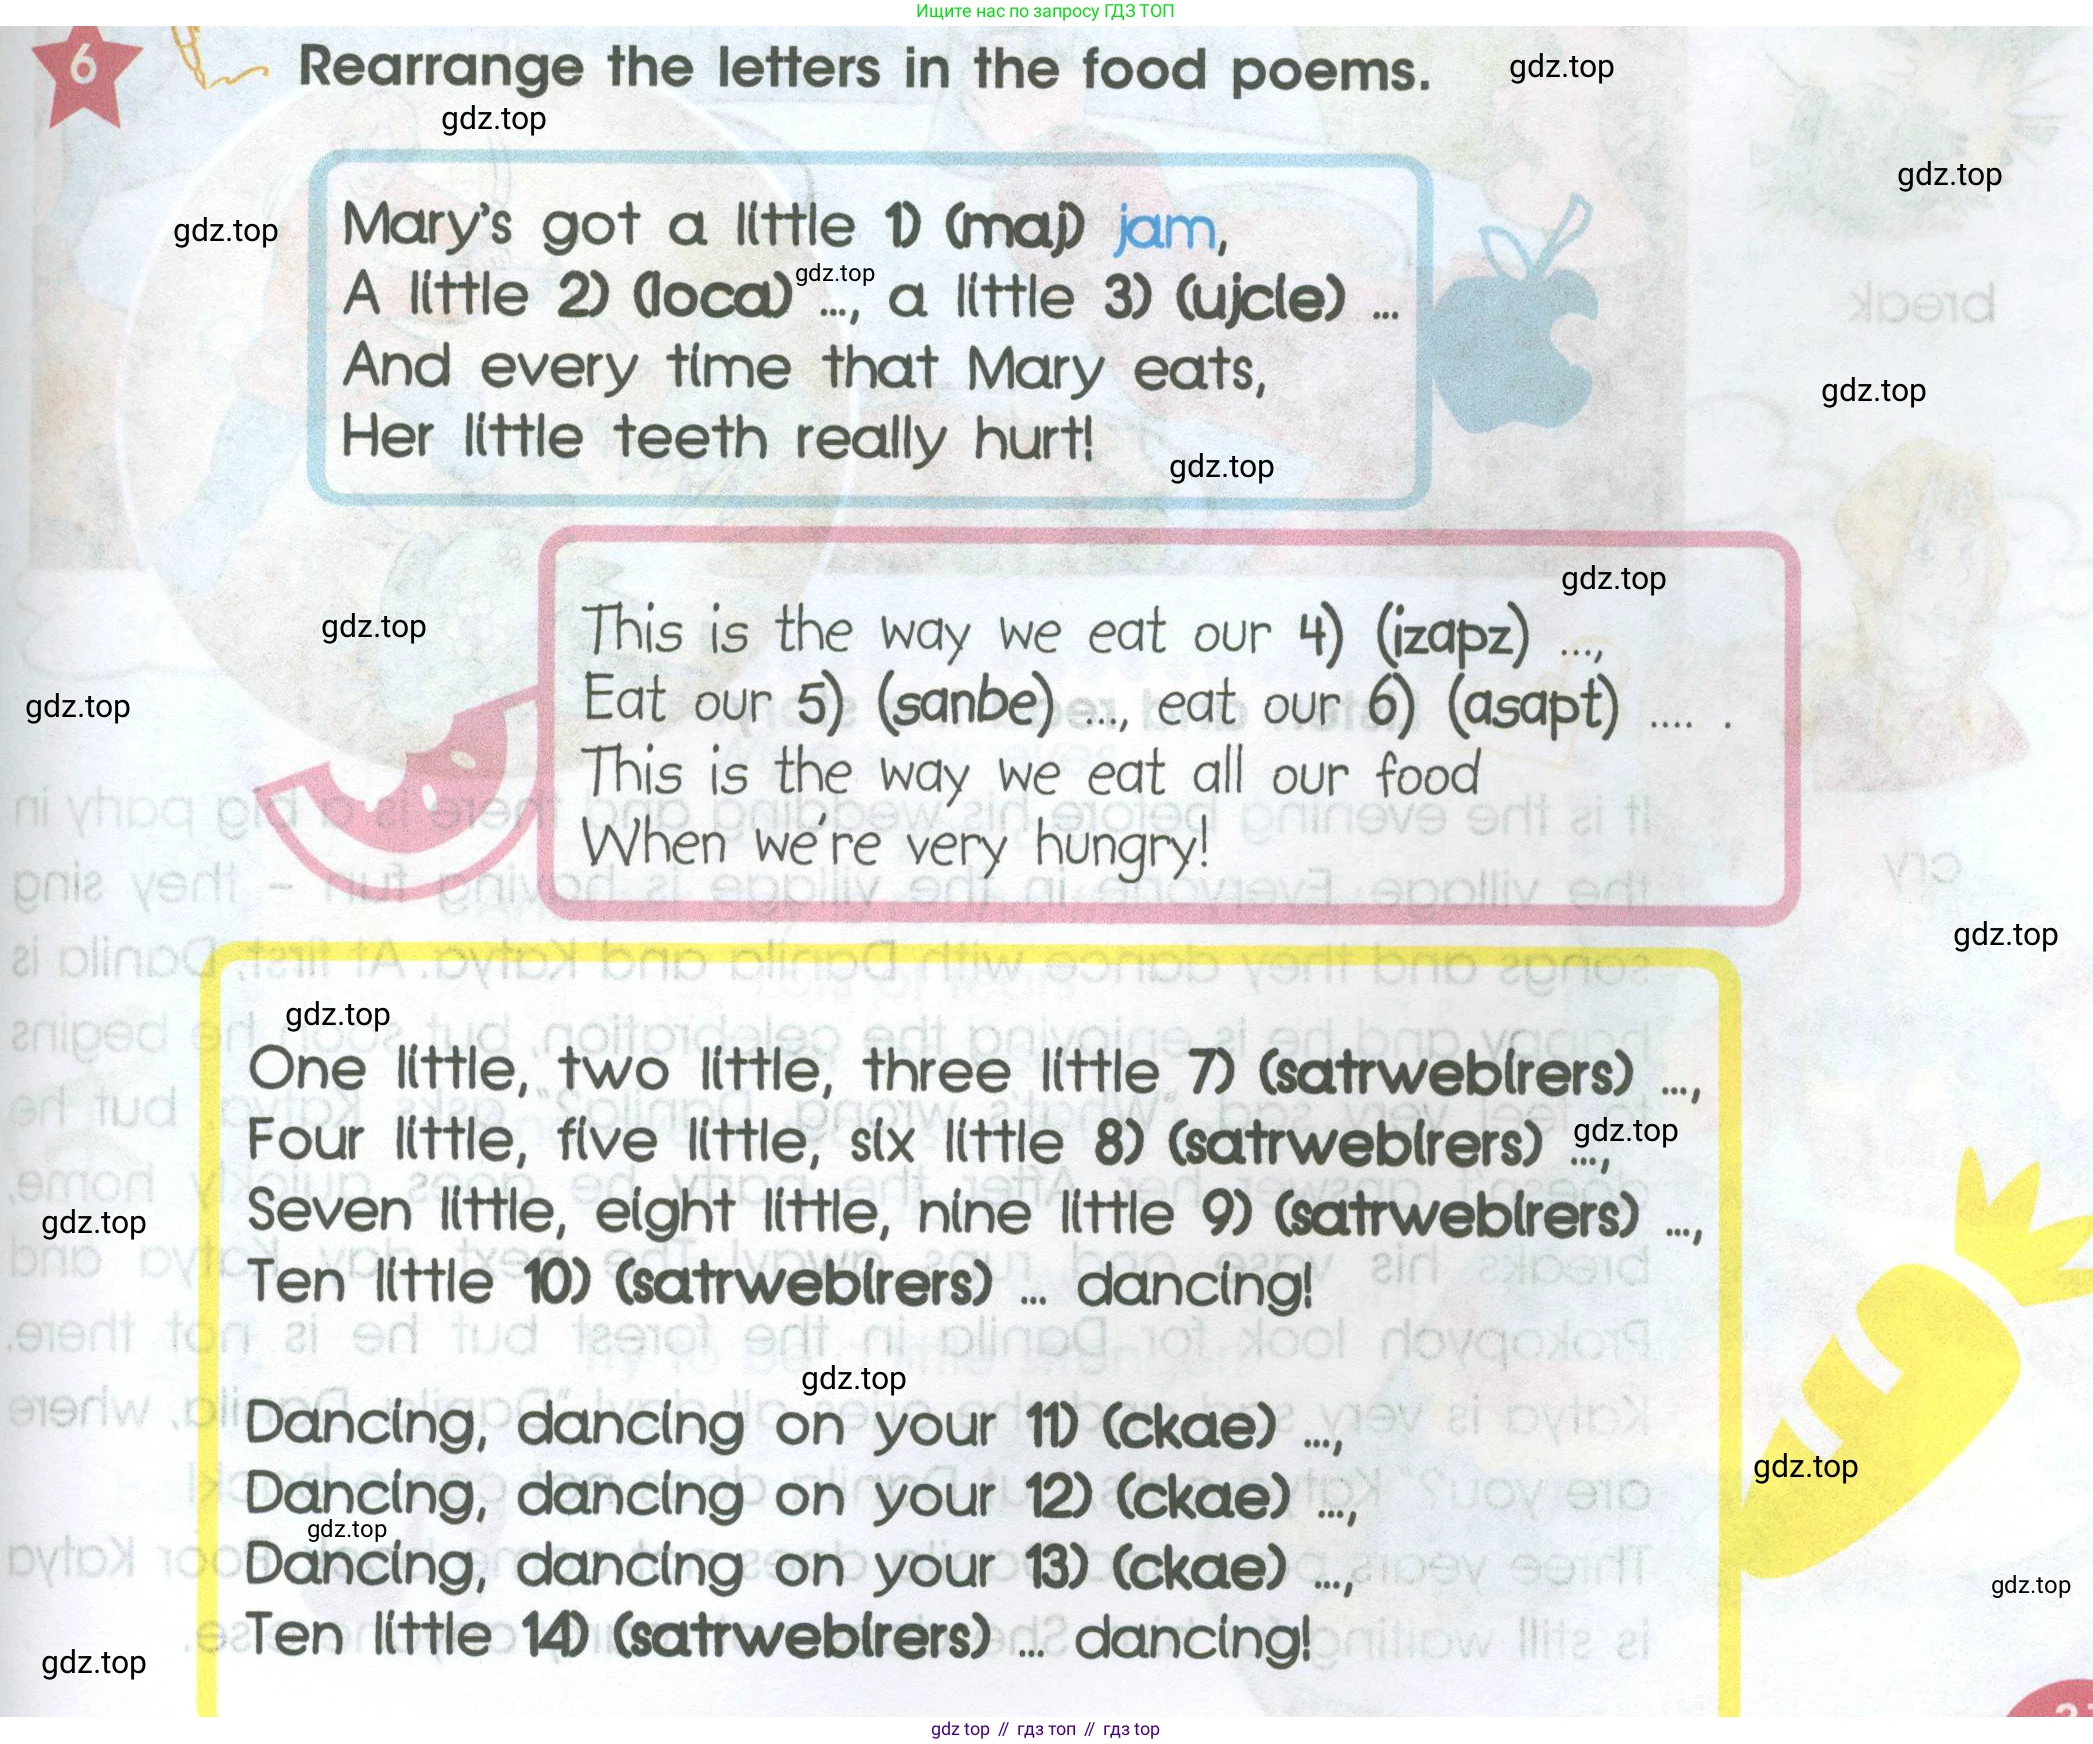 Ищите нас по запросу ГДЗ ТОП
6 Rearrange the letters in the food poems.
gdz.top
gdz.top
gdz.top
gdz.top
Mary's got a little 1) (maj) jam,
gdz.top
A little 2) (loca) ..., a little 3) (ujcle) ...
break
And every time that Mary eats,
gdz.top
Her little teeth really hurt!
gdz.top
gdz.top
gdz.top
This is the way we eat our 4) (izapz) ...,
gdz.top
Eat our 5) (sanbe) ..., eat our 6) (asapt) .... .
This is the way we eat all our food
When we're very hungry!
cry
gdz.top
gdz.top
One little, two little, three little 7) (satrweblrers) ...,
gdz.top
Four little, five little, six little 8) (satrweblrers) ...,
gdz.top
Seven little, eight little, nine little 9) (satrweblrers) ...,
Ten little 10) (satrweblrers) ... dancing!
gdz.top
Dancing, dancing on your 11) (ckae) ...,
gdz.top
Dancing, dancing on your 12) (ckae) ...,
gdz.top
Dancing, dancing on your 13) (ckae) ...,
gdz.top
Ten little 14) (satrweblrers) ... dancing!
gdz.top
gdz top // гдз топ // гдз top